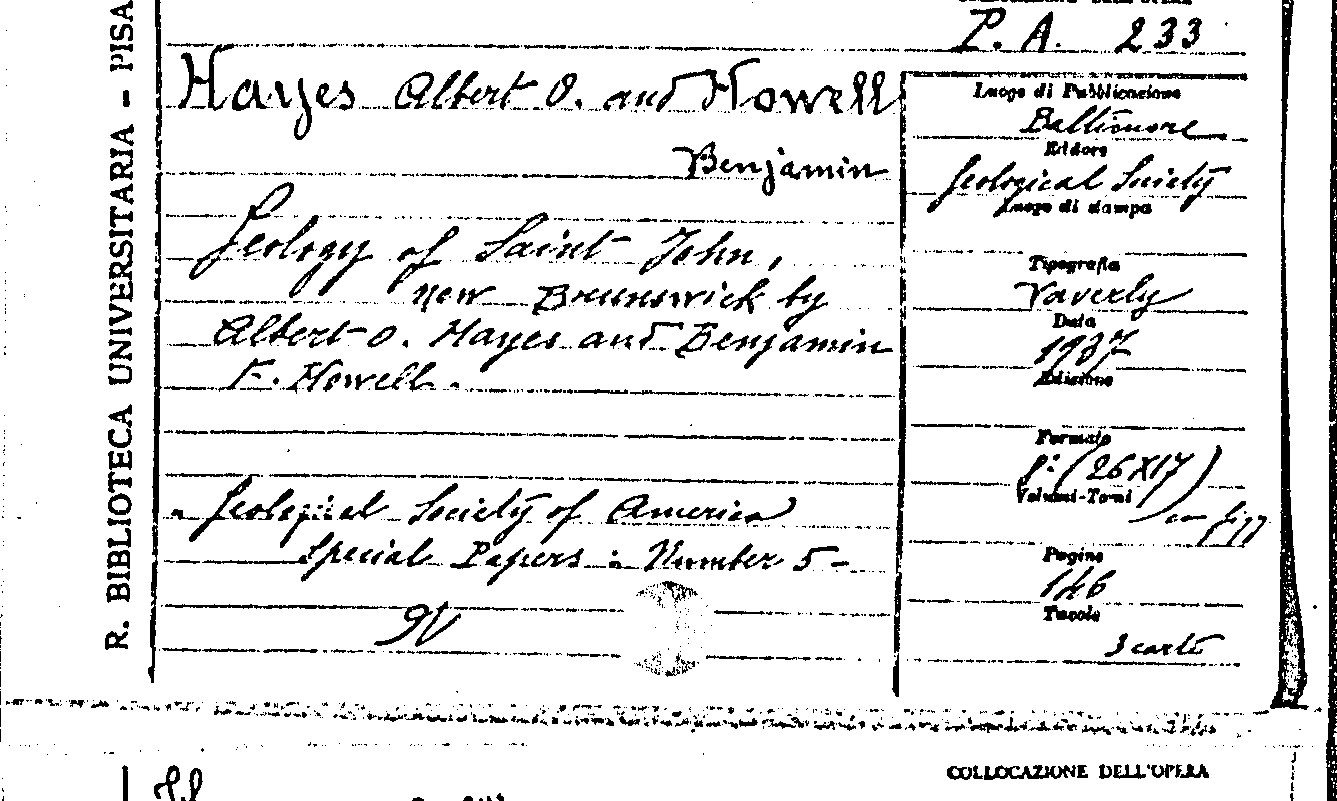 R. BIBLIOTECA UNIVERSITARIA - PISA
P. A. 233
Hayes Albert O. and Howell
Benjamin
Geology of Saint John,
New Brunswick by
Albert O. Hayes and Benjamin
F. Howell.
Geological Society of America
Special Papers : Number 5 -
Luogo di Pubblicazione
Baltimore
Editore
Geological Society
Luogo di stampa
Tipografia
Waverly
Data
1937
Edizione
Formato
8° (26X17)
Volumi-Tomi
con figg
Pagine
146
Tavole
3 carte
COLLOCAZIONE DELL'OPERA